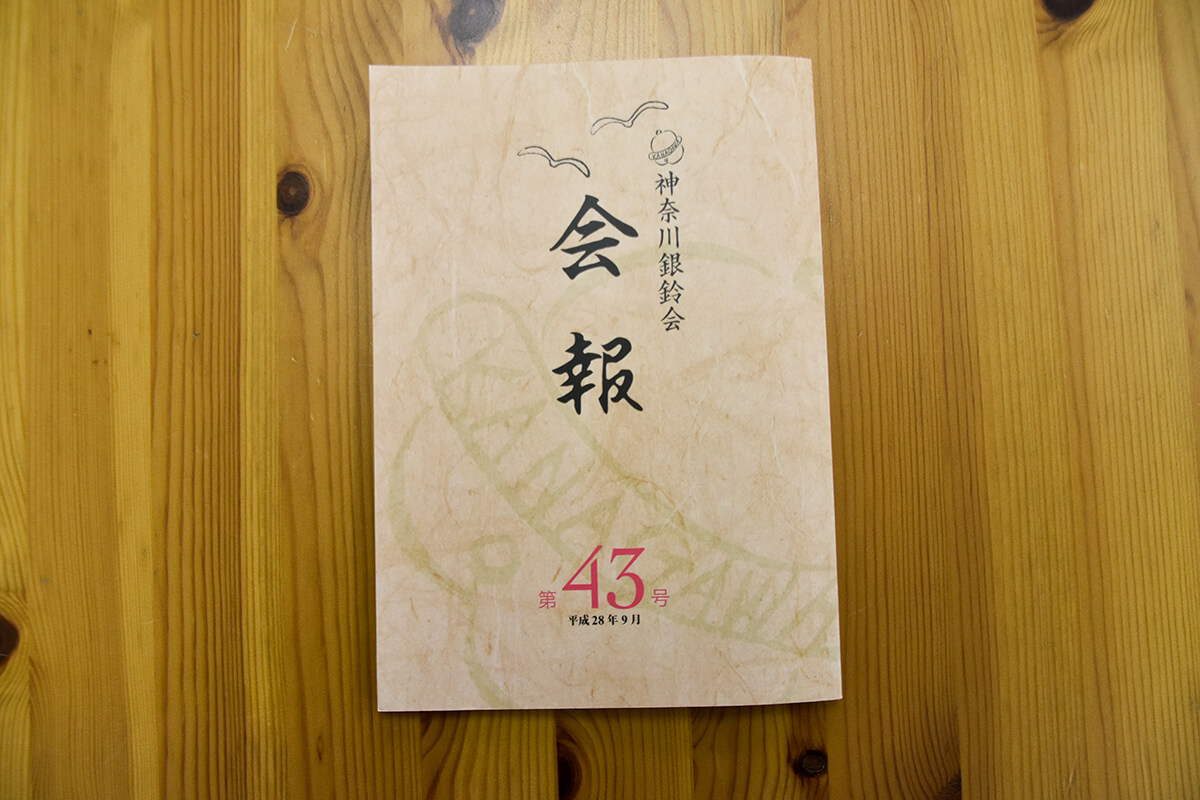 神奈川銀鈴会
会報
第43号
平成28年9月
KANAGAWA